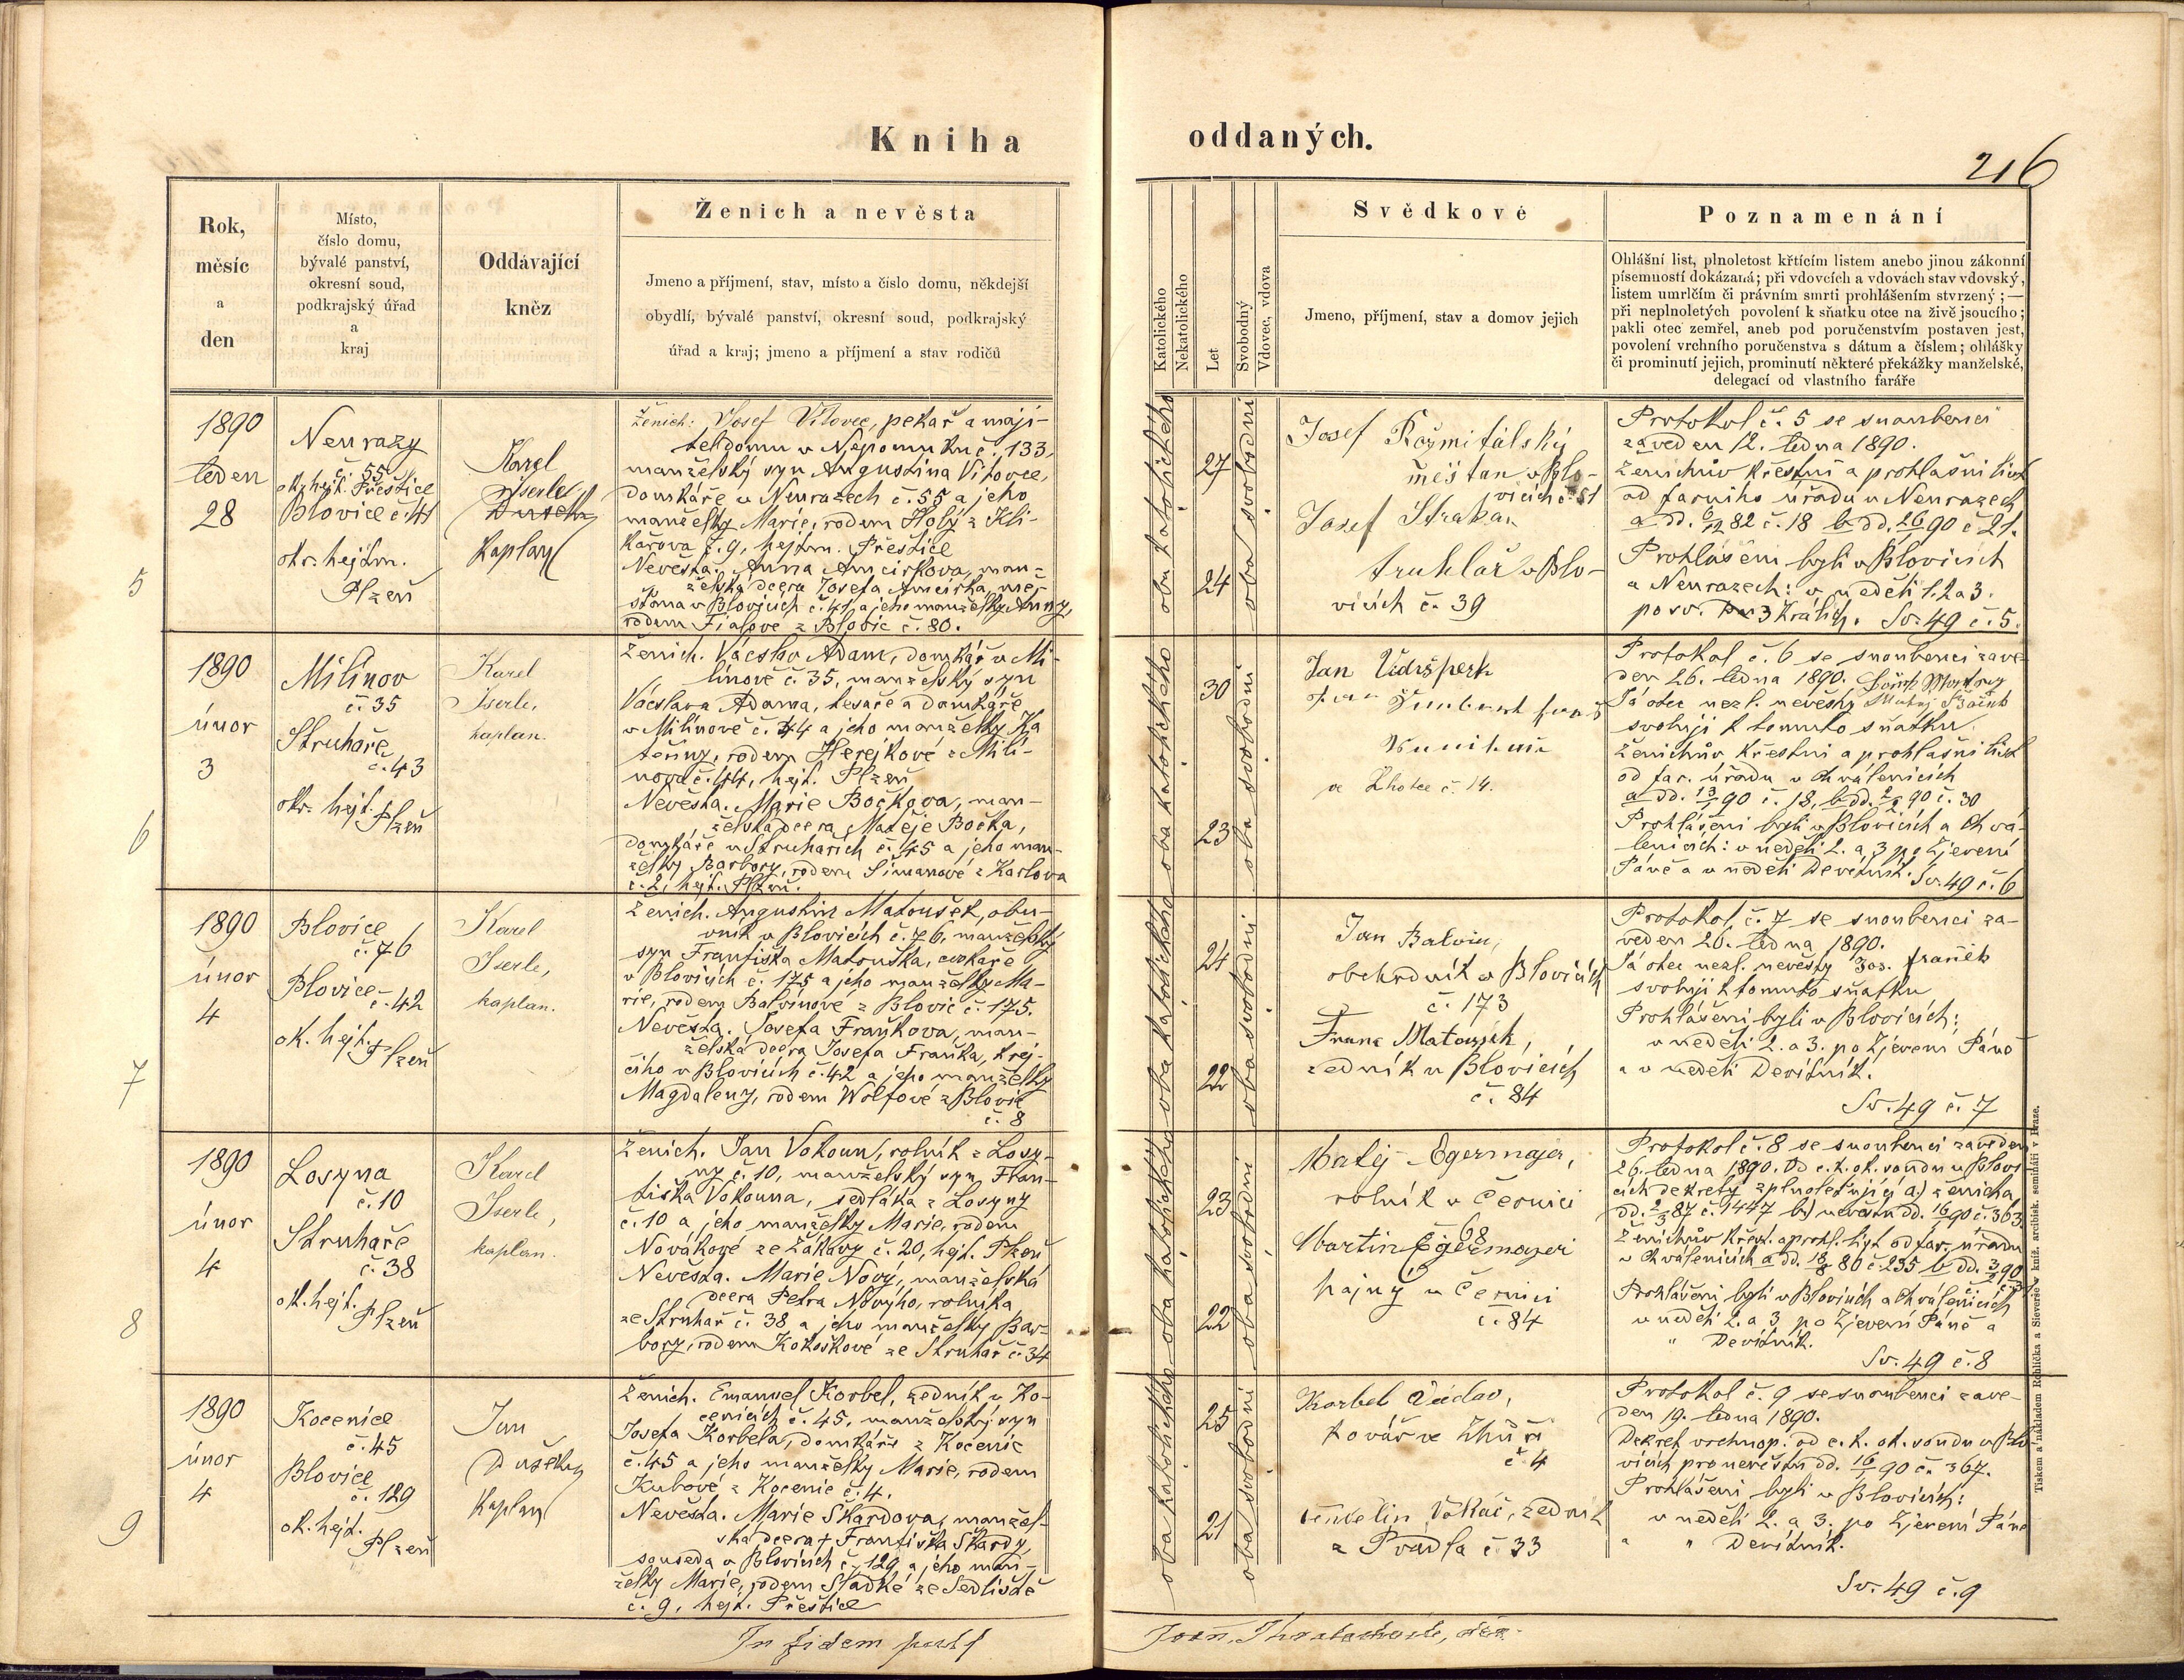 Kniha oddaných.
216
Rok,
měsíc
a
den
Místo,
číslo domu,
bývalé panství,
okresní soud,
podkrajský úřad
a
kraj
Oddávající
kněz
Ženich a nevěsta
Jmeno a příjmení, stav, místo a číslo domu, někdejší
obydlí, bývalé panství, okresní soud, podkrajský
úřad a kraj; jmeno a příjmení a stav rodičů
Katolického
Nekatolického
Let
Svobodný
Vdovec, vdova
Svědkové
Jmeno, příjmení, stav a domov jejich
Poznamenání
Ohlášní list, plnoletost křtícím listem anebo jinou zákonní
písemností dokázaná; při vdovcích a vdovách stav vdovský,
listem umrlčím či právním smrti prohlášením stvrzený; —
při neplnoletých povolení k sňatku otce na živě jsoucího;
pakli otec zemřel, aneb pod poručenstvím postaven jest,
povolení vrchního poručenstva s dátum a číslem; ohlášky
či prominutí jejich, prominutí některé překážky manželské,
delegací od vlastního faráře
5
1890
leden
28
Neurazy
č. 55
ok. hejt. Přeštice
Blovice č. 41
okr. hejtm.
Plzeň
Karel
Iserle
kaplan
Ženich: Josef Vítovec, pekař a maji-
tel domu v Nepomuku č. 133,
manželský syn Augustina Vítovce,
domkáře v Neurazech č. 55 a jeho
manželky Marie, rodem Holý z Kli-
kařova č. 9, hejtm. Přeštice
Nevěsta. Anna Amcirkova, man-
želská dcera Josefa Amcirka, mě-
šťana v Blovicích č. 41 a jeho manželky Anny,
rodem Fialové z Blovic č. 80.
oba katolického
27
24
oba svobodni
Josef Rožmitálský
měšťan v Blo-
vicích č. 51
Josef Strakar
truhlář v Blo-
vicích č. 39
Protokol č. 5 se snoubenci
zaveden 12. ledna 1890.
Ženichův křestní a prohlašní list
od farního úřadu v Neurazech
a dd. 6/12 82 č. 18 b dd. 26/1 90 č. 21.
Prohlášeni byli v Blovicích
a Neurazech: v neděli 1. 2 a 3.
po sv. 3 Králích. Sv. 49 č. 5.
6
1890
únor
3
Milínov
č. 35
Struhaře
č. 43
okr. hejt. Plzeň
Karel
Iserle,
kaplan.
Ženich. Václav Adam, domkář v Mi-
línově č. 35, manželský syn
Václava Adama, tesaře a domkáře
v Milínově č. 44 a jeho manželky Ka
teřiny, rodem Herejkové z Milí-
nova č. 44, hejt. Plzeň
Nevěsta. Marie Bočkova, man-
želská dcera Matěje Bočka,
domkáře v Struhařích č. 45 a jeho man-
želky Barbory, rodem Šimanové z Karlova
č. 2, hejt. Plzeň.
oba katolického
30
23
oba svobodni
Jan
ve Lhotce č. 14.
Protokol č. 6 se snoubenci zave
den 26. ledna 1890.
Já otec nezl. nevěsty
svoluji k tomuto sňatku
Ženichův křestní a prohlašní list
od far. úřadu v Chválenicích
a dd. 13/1 90 č. 18, b dd. 2/2 90 č. 30
Prohlášeni byli v Blovicích a Chvá-
lenicích: v neděli 2. a 3 po Zjevení
Páně a v neděli Devítník. Sv. 49 č. 6
7
1890
únor
4
Blovice
č. 76
Blovice
č. 42
ok. hejt.
Plzeň
Karel
Iserle,
kaplan.
Ženich. Augustin Matoušek, obu-
vník v Blovicích č. 76, manželský
syn Františka Matouška, cvokaře
v Blovicích č. 175 a jeho manželky Ma-
rie, rodem Balvínové z Blovic č. 175.
Nevěsta. Josefa Fraňkova, man-
želská dcera Josefa Fraňka, krej-
čího v Blovicích č. 42 a jeho manželky
Magdaleny, rodem Wolfové z Blovic
č. 8
oba katolického
24
22
oba svobodni
Jan Balvin,
obchodník v Blovicích
č. 173
Franc Matoušek,
zedník v Blovicích
č. 84
Protokol č. 7 se snoubenci za-
veden 26. ledna 1890.
Já otec nezl. nevěsty Jos. Franěk
svoluji k tomuto sňatku
Prohlášeni byli v Blovicích:
v neděli 2. a 3. po Zjevení Páně
a v neděli Devítník.
Sv. 49 č. 7
8
1890
únor
4
Losyna
č. 10
Struhaře
č. 38
ok. hejt.
Plzeň
Karel
Iserle,
kaplan.
Ženich. Jan Vokoun, rolník z Losy-
ny č. 10, manželský syn Fran-
tiška Vokouna, sedláka z Losyny
č. 10 a jeho manželky Marie, rodem
Novákové ze Žákavy č. 20, hejt. Plzeň
Nevěsta. Marie Nový, manželská
dcera Petra Nového, rolníka
ze Struhař č. 38 a jeho manželky Bar-
bory, rodem Kokoškové ze Struhař č. 34
oba katolického
23
22
oba svobodni
Matěj Egermajer,
rolník v Černici
68
Martin Egermajer
hajný v Černici
č. 84
Protokol č. 8 se snoubenci zaveden
26. ledna 1890. Od c. k. ok. soudu v Blovi
cích dekrety zplnoletňující a) ženicha
dd. 2/3 87 č. 1447 b) nevěstu dd. 16/1 90 č. 363.
Ženichův křest. a prohl. list od far. úřadu
v Chválenicích a dd. 18/8 80 č. 235 b dd. 3/2 90
Prohlášeni byli v Blovicích a Chválenicích
v neděli 2. a 3 po Zjevení Páně a
" Devítník.
Sv. 49 č. 8
9
1890
únor
4
Kocenice
č. 45
Blovice
č. 129
ok. hejt.
Plzeň
Jan
Dušek
kaplan
Ženich. Emanuel Korbel, zedník v Ko-
cenicích č. 45, manželský syn
Josefa Korbela, domkáře z Kocenic
č. 45 a jeho manželky Marie, rodem
Kubové z Kocenic č. 4.
Nevěsta. Marie Škardova, manžel-
ská dcera + Františka Škardy,
souseda v Blovicích č. 129 a jeho man-
želky Marie, rodem Sladké ze Sedliště
č. 9, hejt. Přeštice
oba katolického
25
21
oba svobodni
Korbel Václav,
kovář ve Zhůři
č. 4
Vokáč, zedník
z Prádla č. 33
Protokol č. 9 se snoubenci zave-
den 19. ledna 1890.
Dekret vrchnop. od c. k. ok. soudu v Blo-
vicích pro nevěstu dd. 16/1 90 č. 367.
Prohlášeni byli v Blovicích:
v neděli 2. a 3. po Zjevení Páně
" " Devítník.
Sv. 49 č. 9
In fidem
Tiskem a nákladem Rohlíčka a Sieverse v kníž. arcibisk. semináři v Praze.